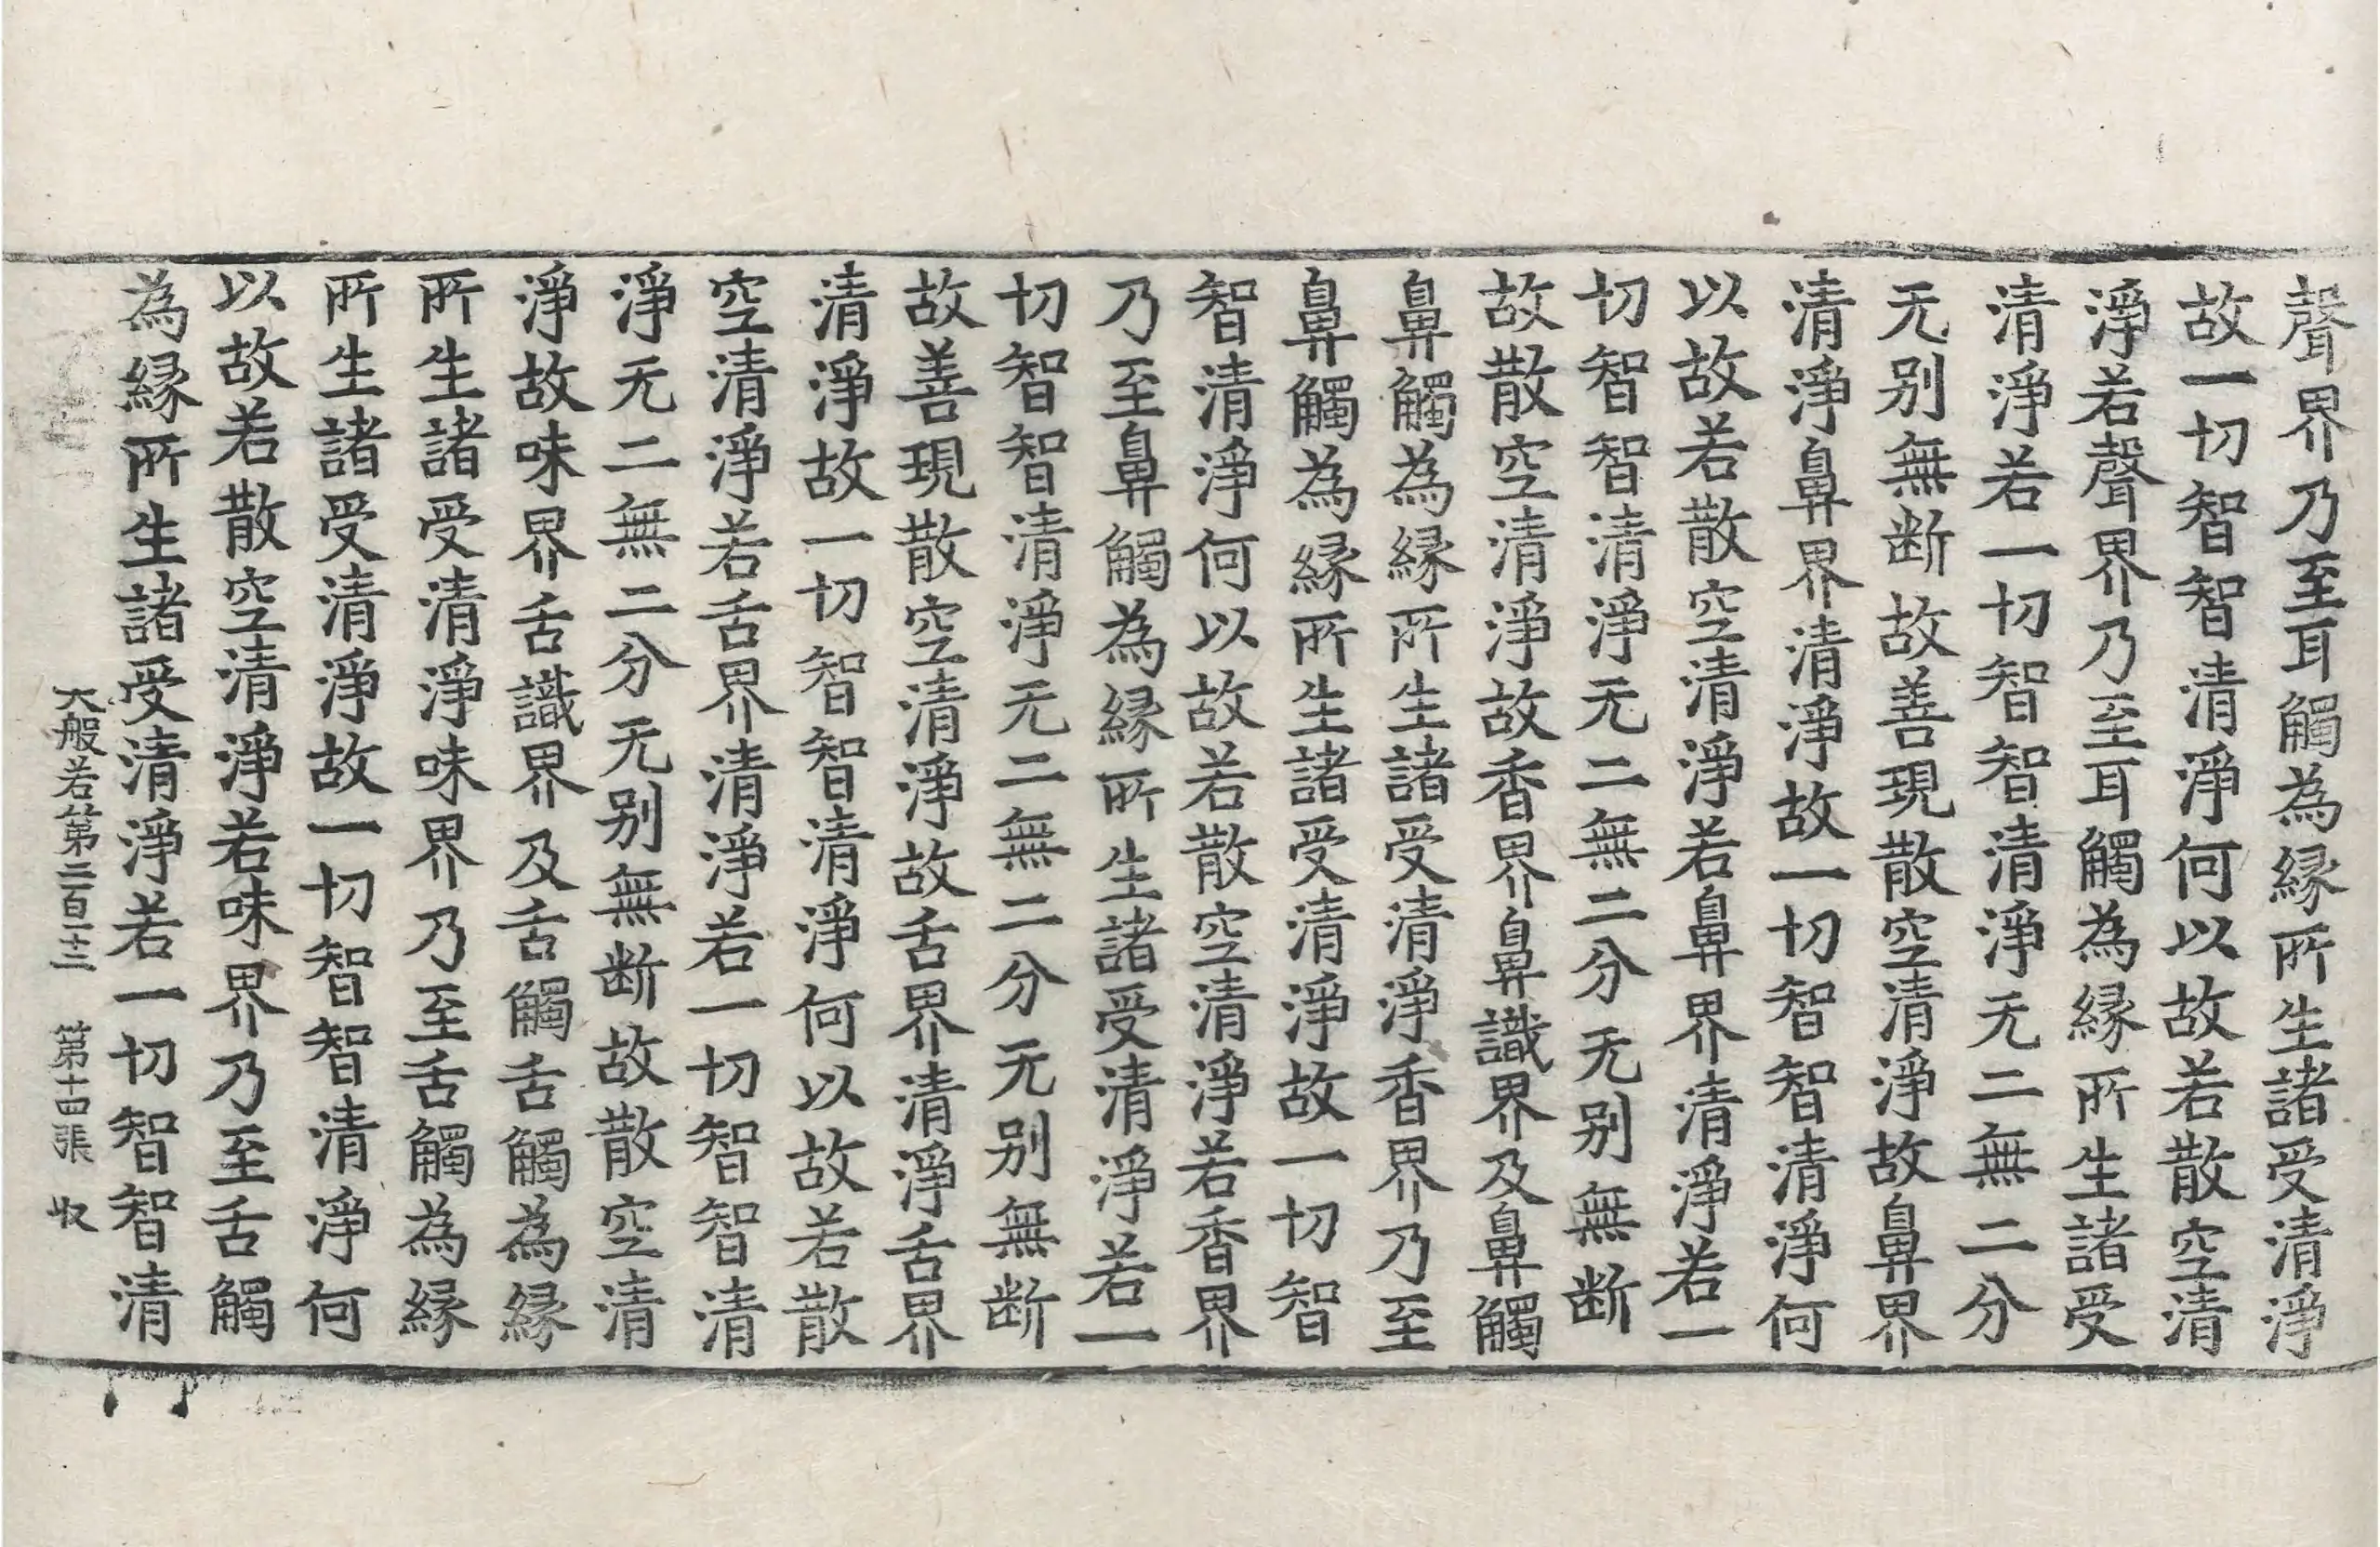 聲界乃至耳觸為縁所生諸受清淨
故一切智智清淨何以故若散空清
淨若聲界乃至耳觸為縁所生諸受
清淨若一切智智清淨无二無二分
无别無断故善現散空清淨故鼻界
清淨鼻界清淨故一切智智清淨何
以故若散空清淨若鼻界清淨若一
切智智清淨无二無二分无别無断
故散空清淨故香界鼻識界及鼻觸
鼻觸為縁所生諸受清淨香界乃至
鼻觸為縁所生諸受清淨故一切智
智清淨何以故若散空清淨若香界
乃至鼻觸為縁所生諸受清淨若一
切智智清淨无二無二分无别無断
故善現散空清淨故舌界清淨舌界
清淨故一切智智清淨何以故若散
空清淨若舌界清淨若一切智智清
淨无二無二分无别無断故散空清
淨故味界舌識界及舌觸舌觸為縁
所生諸受清淨味界乃至舌觸為縁
所生諸受清淨故一切智智清淨何
以故若散空清淨若味界乃至舌觸
為縁所生諸受清淨若一切智智清
大般若第二百一十三 第十四張 収